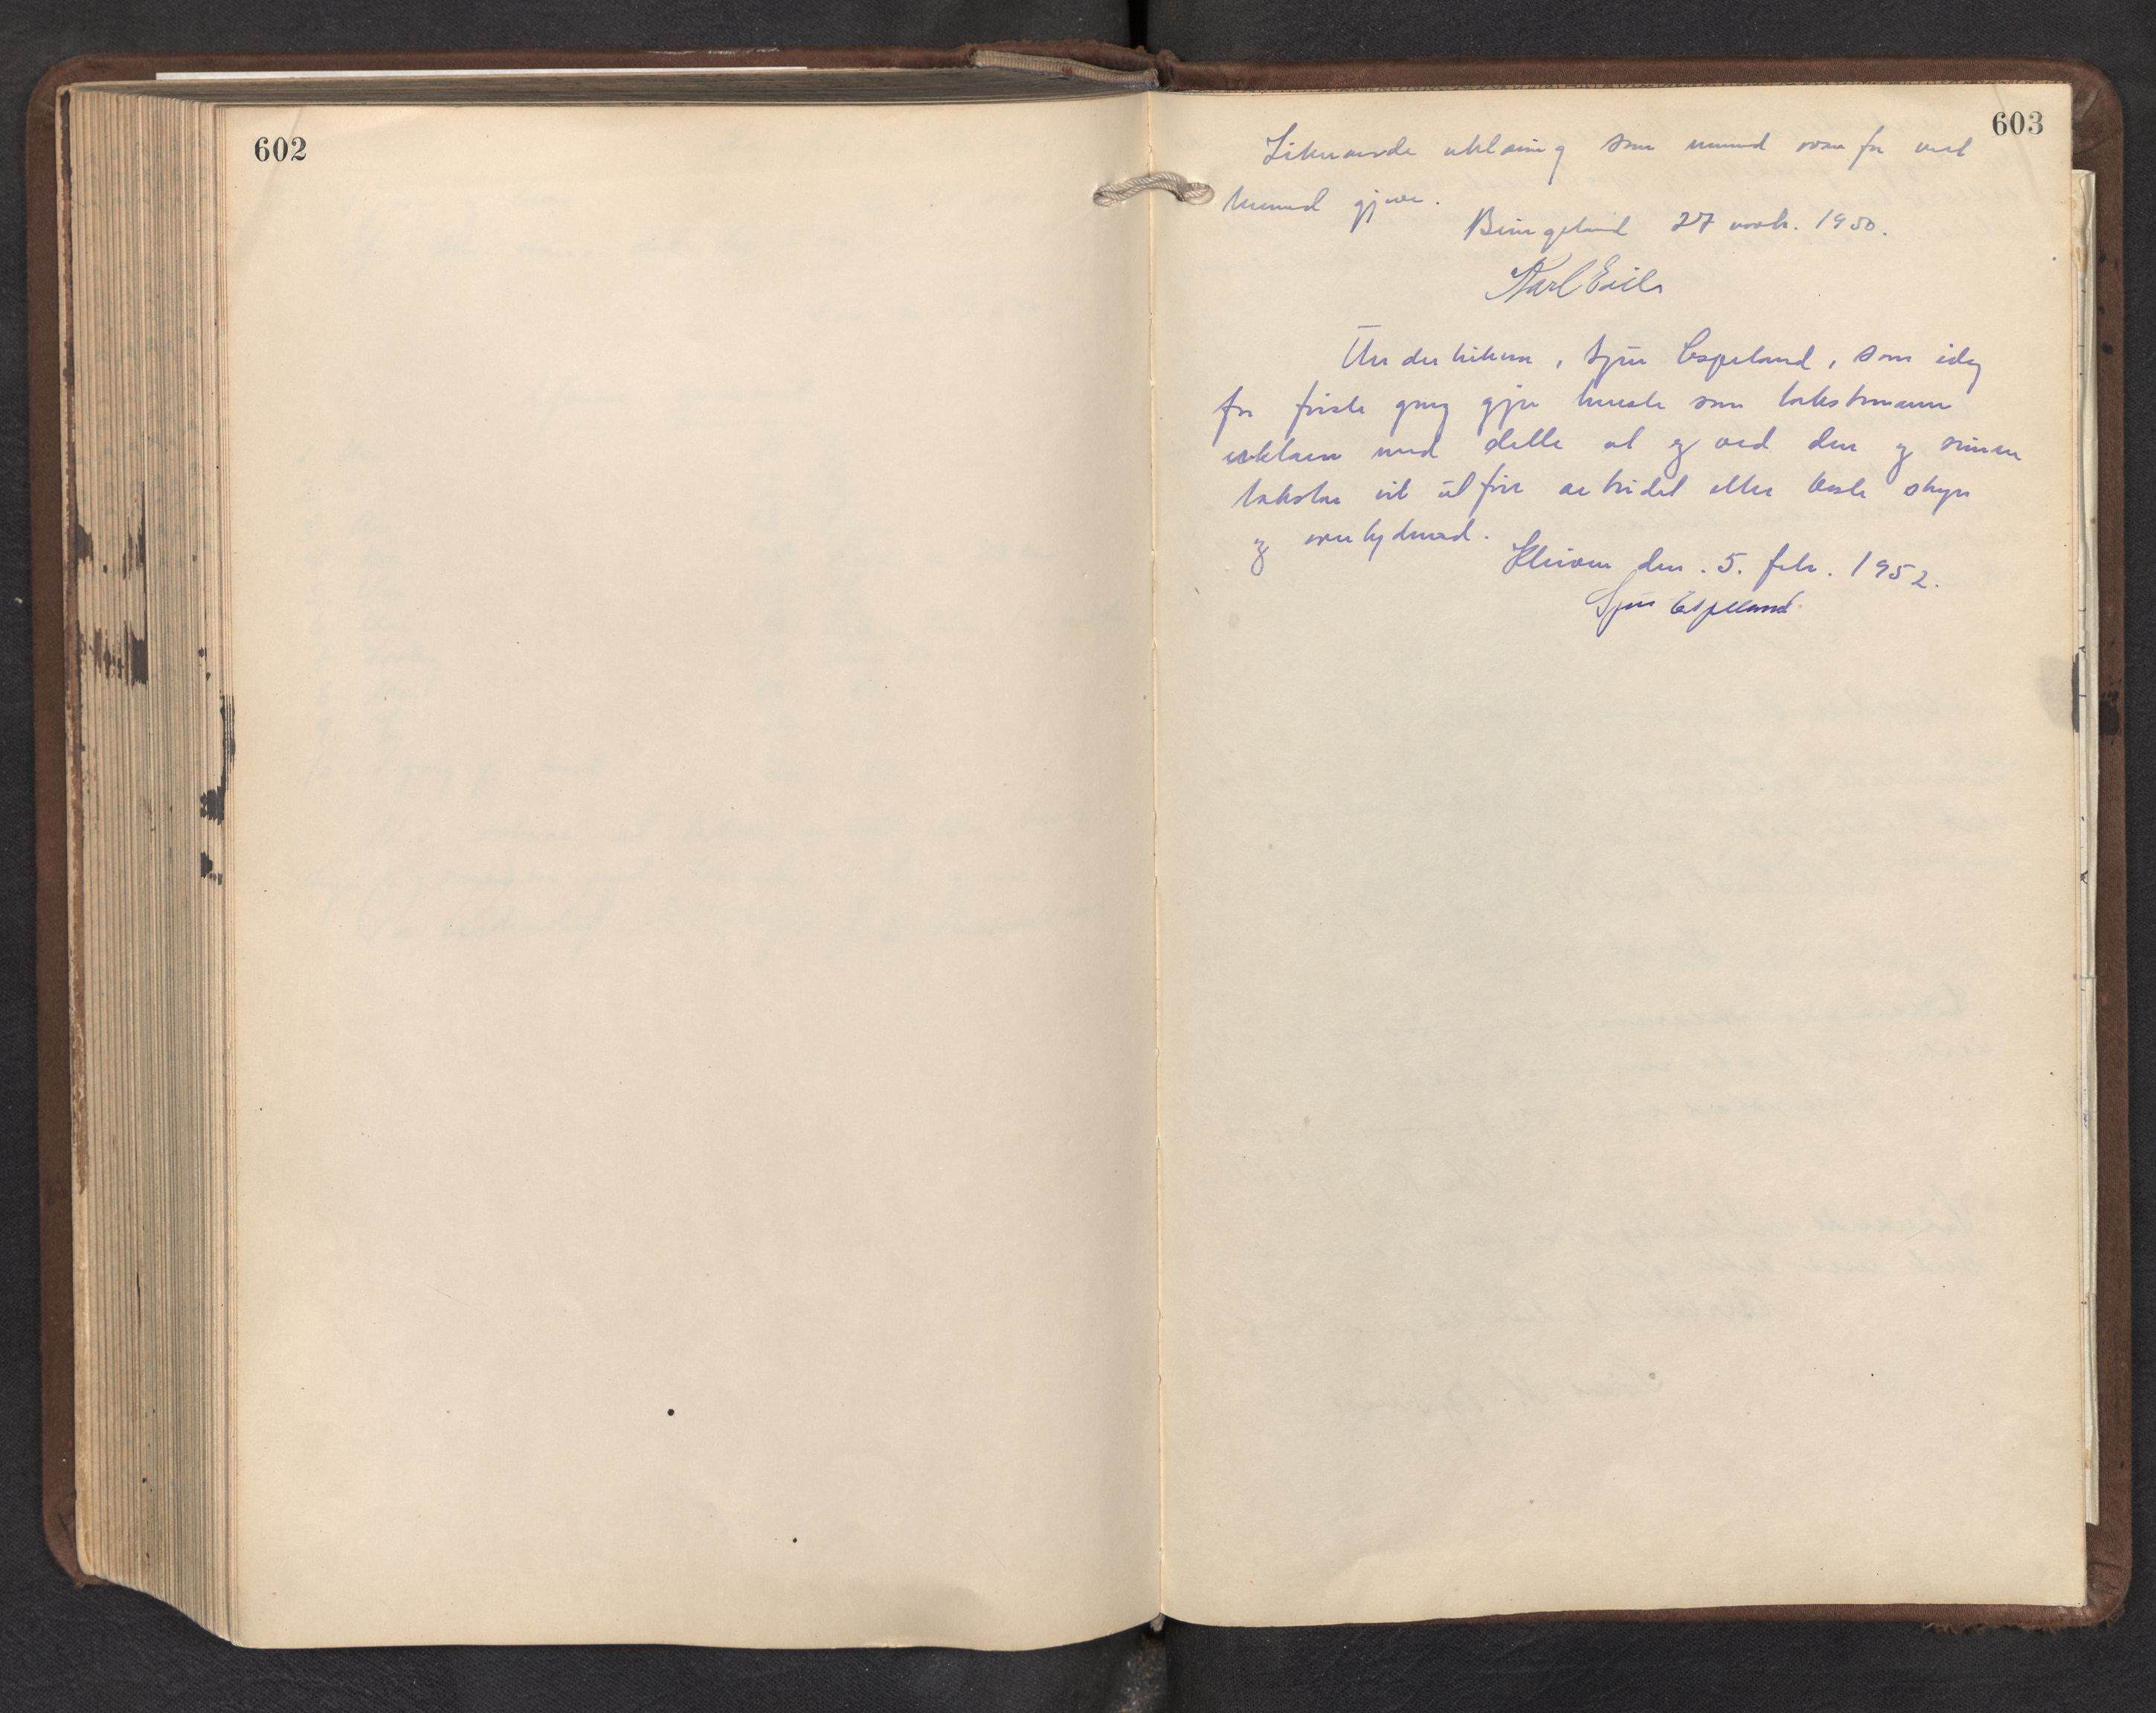 602
603
Liknande utklaring som nemnd ovanfor vert
hermed gjeve.
Bringeland 27 novbr. 1950.
Karl Eikle
Underteikna, Sjur Espeland, som idag
for fyrste gong gjer teneste som takstmann
erklærer med dette at eg ved den og seinare
takstar vil utføre arbeidet etter beste skyn
og overtyding.
Kleiven den. 5. febr. 1952.
Sjur Espeland